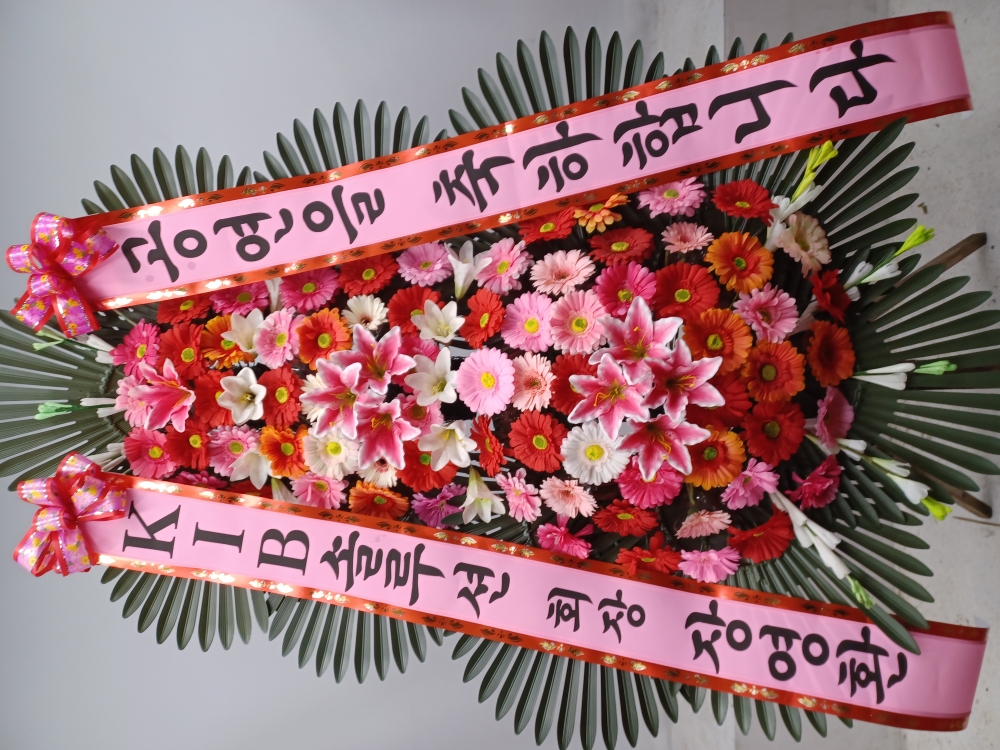 공연을 축하합니다
KIB솔루션 회장 장영환